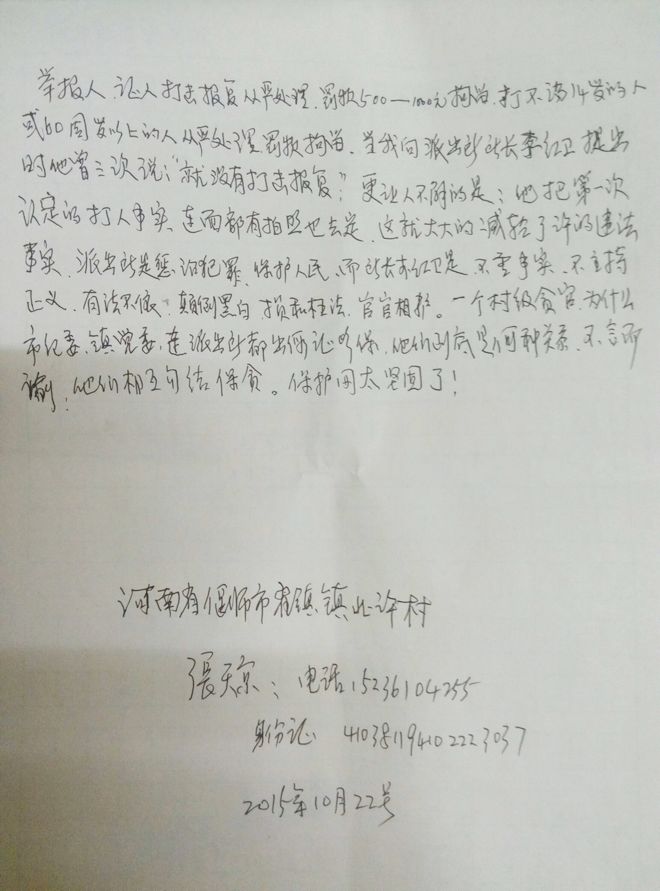 举报人、证人打击报复从严处理、罚款500—1000元拘留、打不满14岁的人
或60周岁以上的人从严处理罚款拘留。当我向派出所所长李红卫提出
时他曾三次说:“就没有打击报复”,更让人不解的是:他把第一次
认定的打人事实连面部有拍照也去是、这就大大的减轻了许的违法
事实、派出所是惩治犯罪、保护人民、而所长李红卫是、不重事实、不主持
正义、有法不依、颠倒黑白、损私枉法、官官相护。一个村级贪官、为什么
市纪委、镇党委、连派出所都出假证明保、他们到底是何种关系、不言而
喻!他们相互勾结保贪。保护网太坚固了!
河南省偃师市 镇北许村
張天京:电话15236104255
身份证 410381194102223037
2015年10月22号